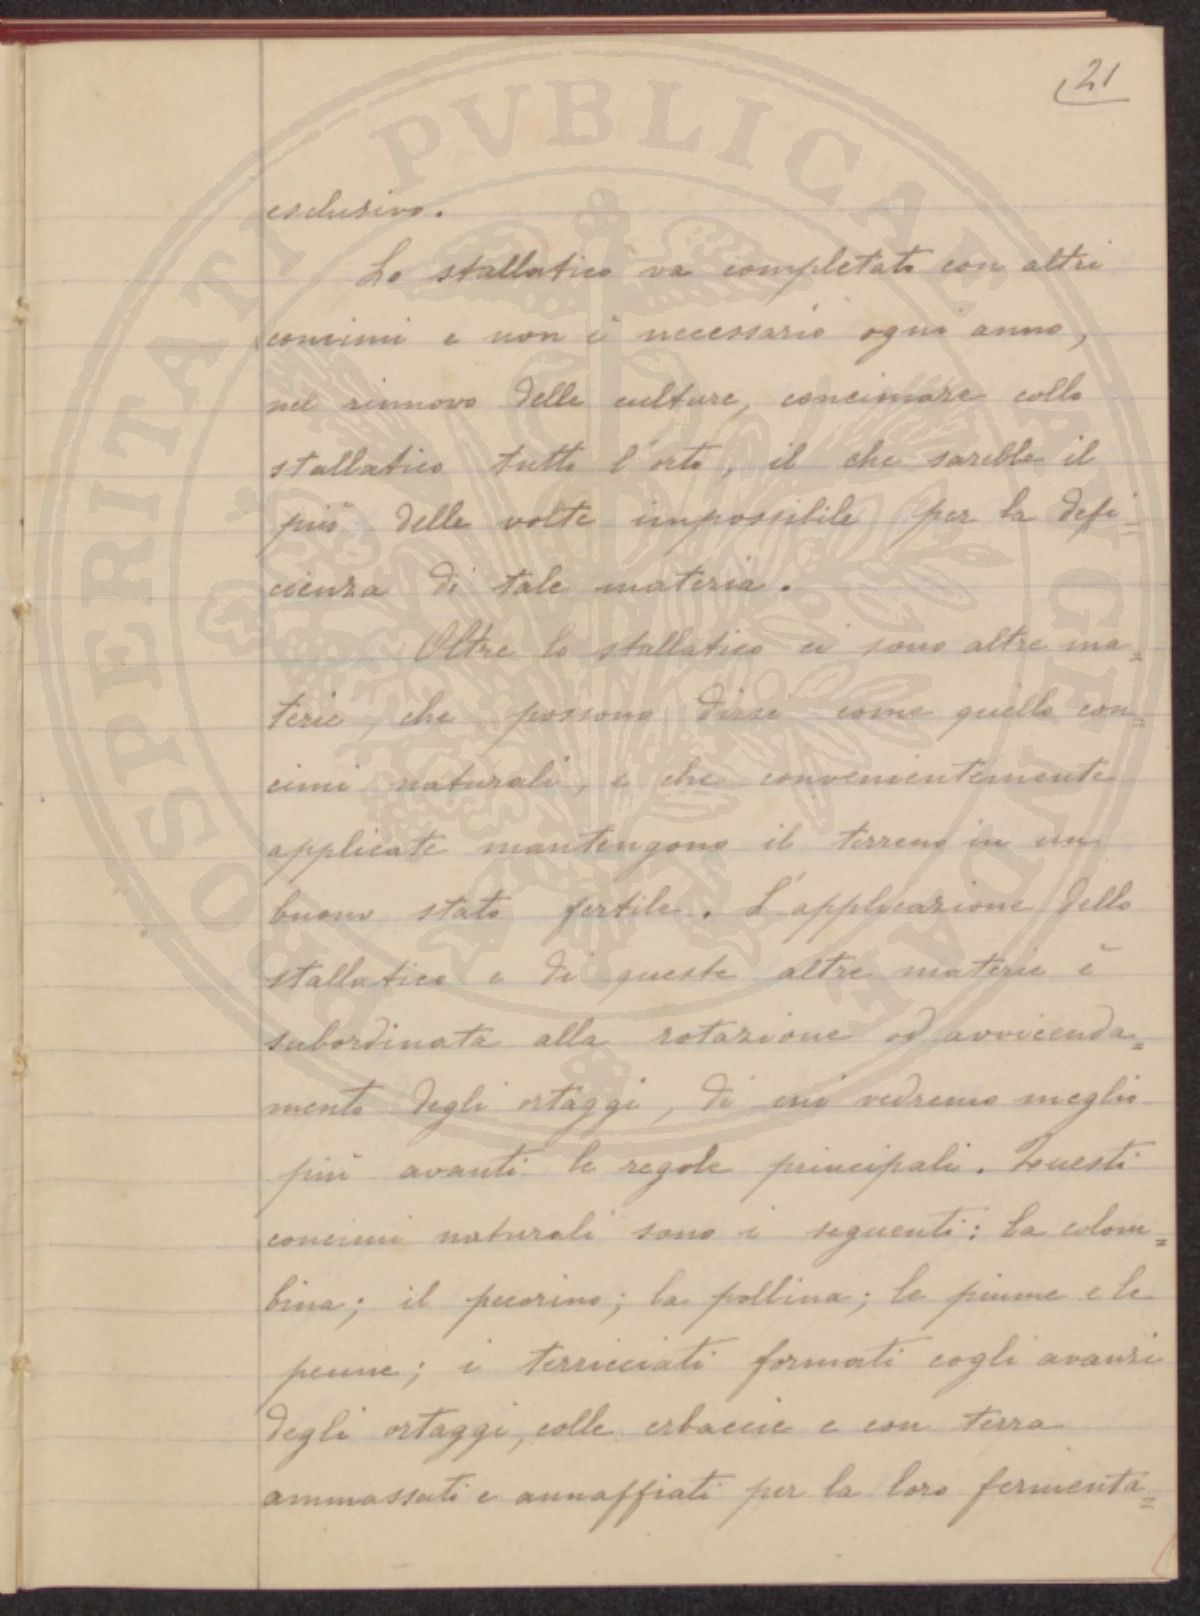 21
esclusivo.
Lo stallatico va completato con altri
concimi e non è necessario ogni anno,
nel rinnovo delle culture, concimare collo
stallatico tutto l'orto, il che sarebbe il
più delle volte impossibile per la defi-
cienza di tale materia.
Oltre lo stallatico ci sono altre ma=
terie, che possono dirsi come quello con=
cimi naturali, e che convenientemente
applicate mantengono il terreno in un
buono stato fertile. L'applicazione dello
stallatico e di queste altre materie è
subordinata alla rotazione od avvicenda=
mento degli ortaggi, di cui vedremo meglio
più avanti le regole principali. Questi
concimi naturali sono i seguenti: la colom=
bina; il pecorino; la pollina; le piume e le
penne; i terricciati formati cogli avanzi
degli ortaggi, colle erbaccie e con terra
ammassati e annaffiati per la loro fermenta=
PROSPERITATI PVBLICAE AVGENDAE